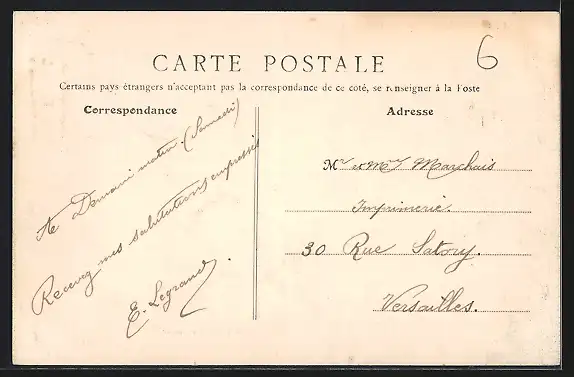 6
CARTE POSTALE
Certains pays étrangers n'acceptant pas la correspondance de ce coté, se renseigner à la Poste
Correspondance
Adresse
A Demain matin. (Samedi)
Recevez mes salutations empressées
E. Legrand.
Mr et Me Marchais
Imprimerie.
30 Rue Satory.
Versailles.